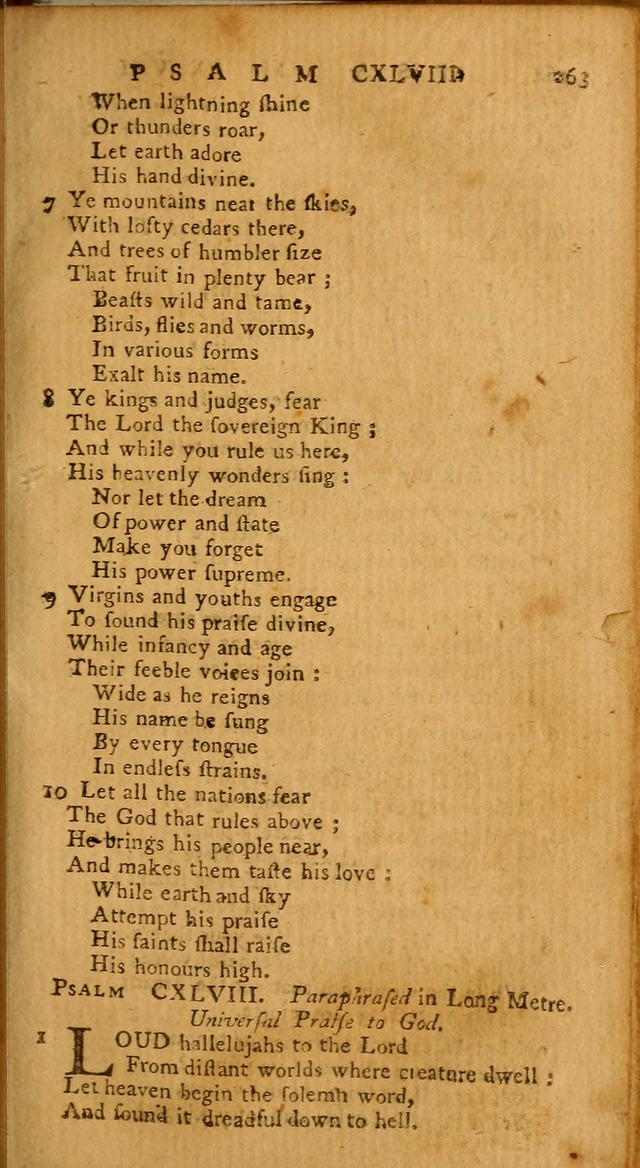 PSALM CXLVIII 263
When lightning ſhine
Or thunders roar,
Let earth adore
His hand divine.
7 Ye mountains near the ſkies,
With lofty cedars there,
And trees of humbler ſize
That fruit in plenty bear ;
Beaſts wild and tame,
Birds, flies and worms,
In various forms
Exalt his name.
8 Ye kings and judges, fear
The Lord the ſovereign King ;
And while you rule us here,
His heavenly wonders ſing :
Nor let the dream
Of power and ſtate
Make you forget
His power ſupreme.
9 Virgins and youths engage
To ſound his praiſe divine,
While infancy and age
Their feeble voices join :
Wide as he reigns
His name be ſung
By every tongue
In endleſs ſtrains.
10 Let all the nations fear
The God that rules above ;
He brings his people near,
And makes them taſte his love :
While earth and ſky
Attempt his praiſe
His ſaints ſhall raiſe
His honours high.
PSALM CXLVIII. Paraphraſed in Long Metre.
Univerſal Praiſe to God.
1 LOUD hallelujahs to the Lord
From diſtant worlds where creature dwell :
Let heaven begin the ſolemn word,
And ſound it dreadful down to hell.